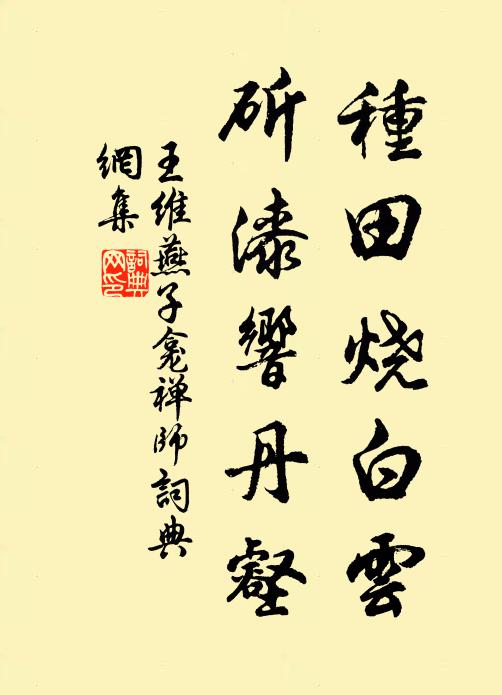 種田烧白雲
斫漆響丹壑
王維燕子龛禅師詞典
網集
詞典
网印